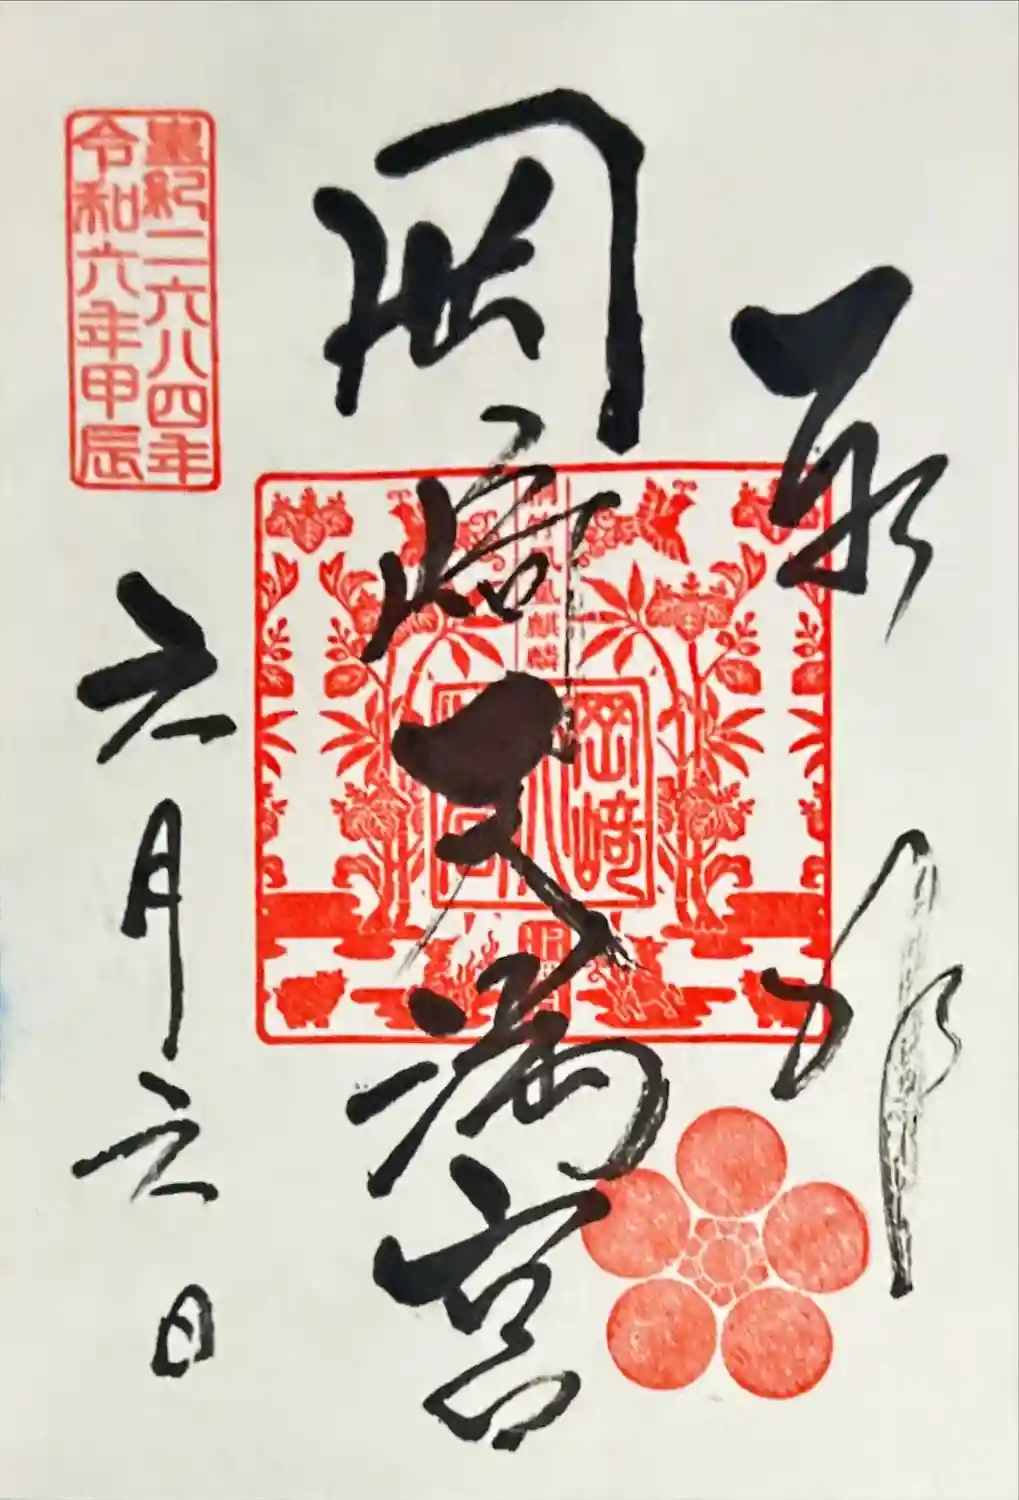 奉拝
岡崎天満宮
六月六日
皇紀二六八四年
令和六年甲辰
桐竹鳳凰麒麟
岡崎